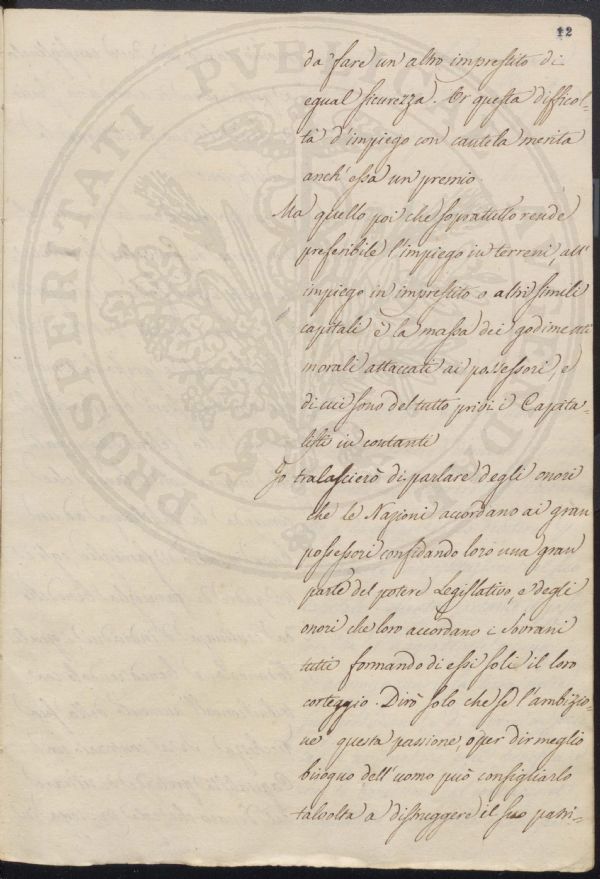 12
da fare un' altro imprestito di
egual sicurezza. Or questa difficol=
tà d'impiego con cautela merita
anch' essa un premio.
Ma quello poi che soprattutto rende
preferibile l'impiego in terreni, all'
impiego in imprestito o altri simili
capitali è la massa dei godimenti
morali attaccati ai possessori, e
di cui sono del tutto privi i Capita=
listi in contanti
Io tralascierò di parlare degli onori
che le Nazioni accordano ai gran
possessori confidando loro una gran
parte del potere Legislativo, e degli
onori che loro accordano i Sovrani
tutti formando di essi soli il loro
corteggio. Dirò solo che se l'ambizio
ne questa passione, o per dir meglio
bisogno dell'uomo può consigliarlo
talvolta a distruggere il suo patri=
PROSPERITATI PUBLICAE